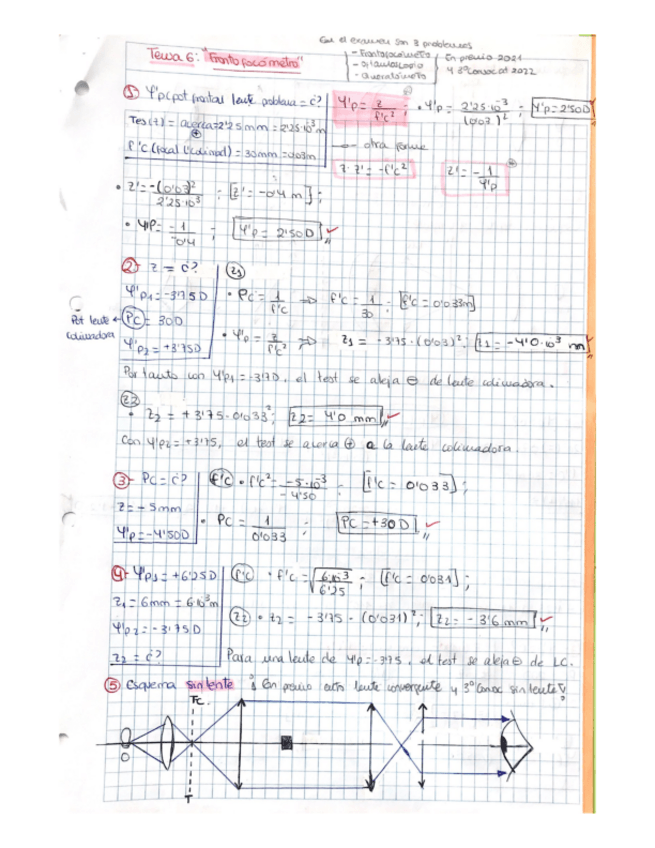 En el examen son 3 problemas
Tema 6: "Frontofocómetro"
- Frontofocómetro
- Oftalmoscopio
- Queratómetro
En previo 2021
y 3ªconvocat 2022
① Ψ'p (pot frontal lente problema = ¿?
Ψ'p = z / f'c² ; • Ψ'p = 2'25·10⁻³ / (0'03)² ; Ψ'p = 2'50D
Tes(t) = acerca = 2'25mm = 2'25·10⁻³m
⊕
f'c (focal L colimad) = 30mm = 0'03m
otra forma
z·z' = -f'c²
z' = -1/Ψ'p
• z' = -(0'03)² / 2'25·10⁻³ ; [z' = -0'4 m] ;
• Ψ'P = -1 / -0'4 ; Ψ'p = 2'50D
②- z = ¿?
Ψ'p1 = -3'75D
Pot lente colimadora ← Pc = 30D
Ψ'p2 = +3'75D
z1
• Pc = 1/f'c ⇒ f'c = 1/30 ; [f'c = 0'033m]
• Ψ'p = z/f'c² ⇒ z1 = -3'75·(0'033)² ; z1 = -4'0·10⁻³ m
Por tanto con Ψ'p1 = -3'7D, el test se aleja ⊖ de lente colimadora.
z2
• z2 = +3'75·0'033² ; z2 = 4'0 mm
Con Ψ'p2 = +3'75, el test se acerca ⊕ a la lente colimadora.
③- Pc = ¿?
z = -5mm
Ψ'p = -4'50D
f'c • f'c² = -5·10⁻³ / -4'50 ; [f'c = 0'033] ;
• Pc = 1 / 0'033 ; Pc = +30D
④- Ψ'p1 = +6'25D
z1 = 6mm = 6·10⁻³m
Ψ'p2 = -3'75D
z2 = ¿?
f'c • f'c = √(6·10⁻³ / 6'25) ; [f'c = 0'031] ;
z2 • z2 = -3'75 · (0'031)² ; z2 = -3'6 mm
Para una lente de Ψ'p = -3'75, el test se aleja ⊖ de LC.
⑤ Esquema sin lente
En previo entró lente convergente y 3ªconvoc sin lente
Fc
O
T